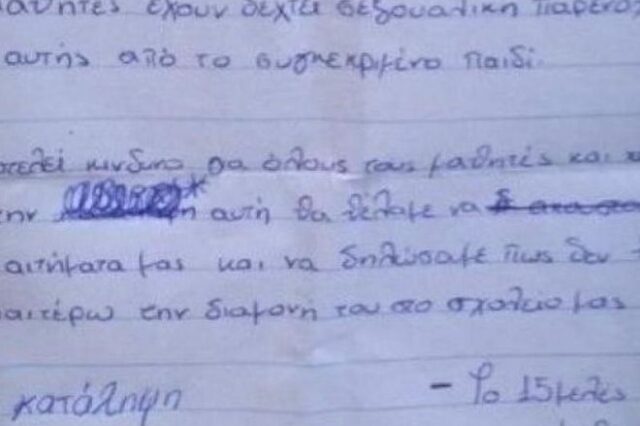 έχουν δεχτεί σεξουαλική παρενο
αυτής από το συγκεκριμένο παιδί.
οτελεί κίνδυνο για όλους τους μαθητές και τ
ην * αυτή θα θέλαμε να
αιτήματα μας και να δηλώσαμε πως δεν
αιτέρω την διαμονή του στο σχολείο μας
κατάληψη - Το 15μελές